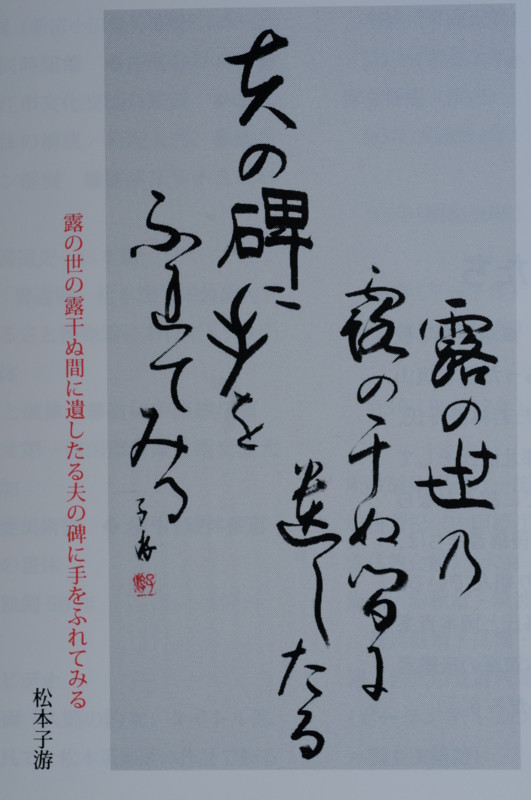 露の世乃
露の干ぬ間に
遺したる
夫の碑に手を
ふれてみる
子游
露の世の露干ぬ間に遺したる夫の碑に手をふれてみる
松本子游